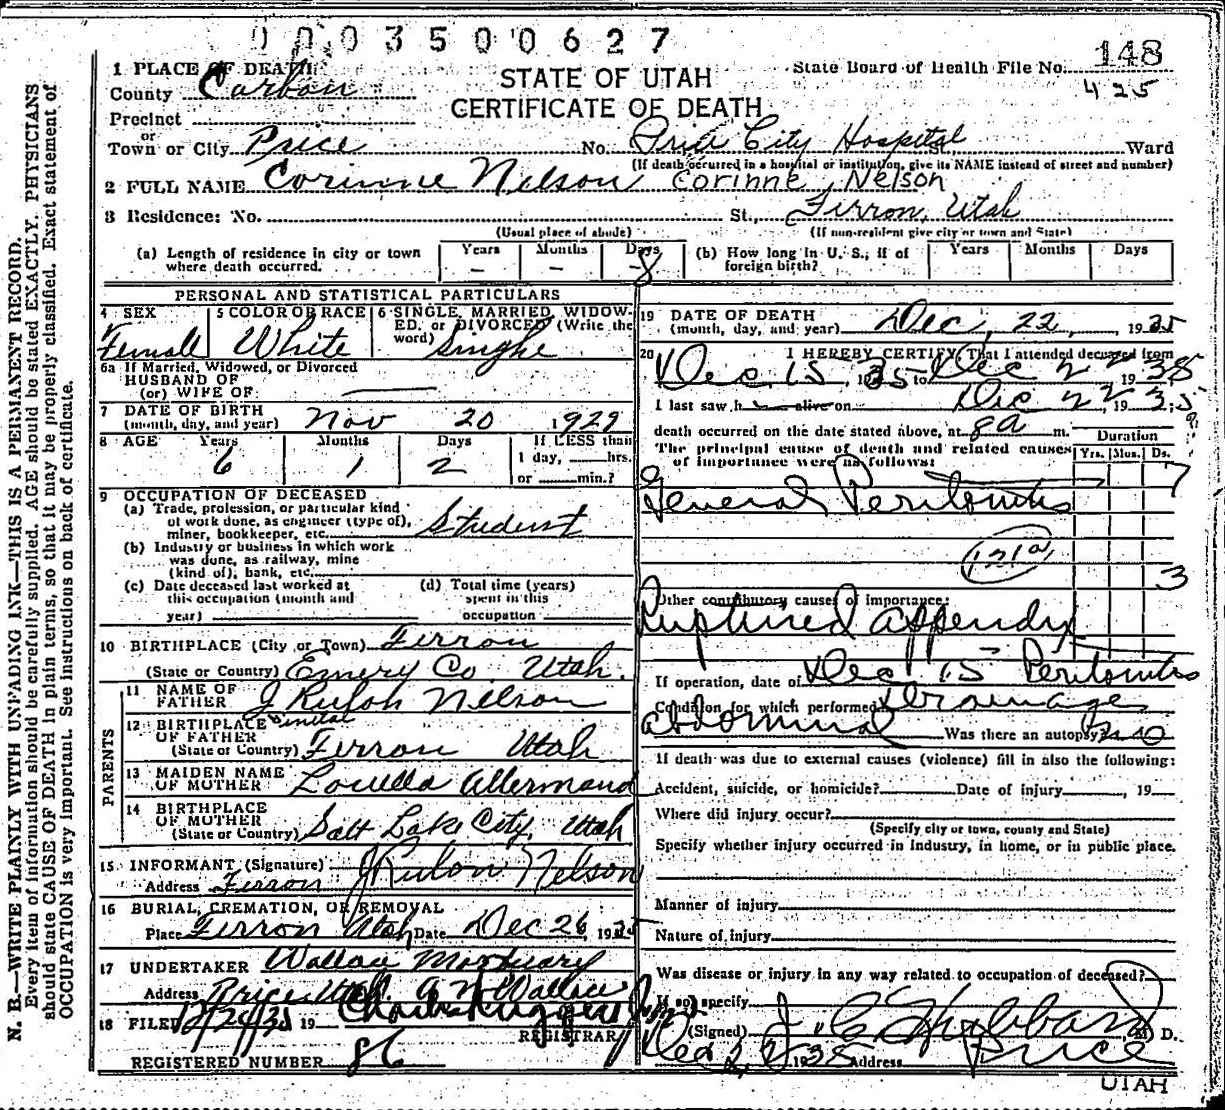 0003500627
1 PLACE OF DEATH
County Carbon
STATE OF UTAH
CERTIFICATE OF DEATH
State Board of Health File No. 148
425
Precinct
or
Town or City Price No. Price City Hospital St. Ward
(If death occurred in a hospital or institution, give its NAME instead of street and number)
2 FULL NAME Corinne Nelson Corinne Nelson
3 Residence: No. St., Ferron, Utah
(Usual place of abode) (If non-resident give city or town and State)
(a) Length of residence in city or town where death occurred. Years – Months – Days 8
(b) How long in U. S., if of foreign birth? Years Months Days
PERSONAL AND STATISTICAL PARTICULARS
4 SEX Female
5 COLOR OR RACE White
6 SINGLE, MARRIED, WIDOWED, or DIVORCED (Write the word) Single
6a If Married, Widowed, or Divorced
HUSBAND OF
(or) WIFE OF:
7 DATE OF BIRTH
(month, day, and year) Nov 20 1929
8 AGE Years 6 Months 1 Days 2 If LESS than 1 day, hrs. or min.?
9 OCCUPATION OF DECEASED
(a) Trade, profession, or particular kind of work done, as engineer (type of), miner, bookkeeper, etc. Student
(b) Industry or business in which work was done, as railway, mine (kind of), bank, etc.
(c) Date deceased last worked at this occupation (month and year)
(d) Total time (years) spent in this occupation
10 BIRTHPLACE (City or Town) Ferron
(State or Country) Emery Co. Utah.
PARENTS
11 NAME OF FATHER J Rulon Nelson
12 BIRTHPLACE OF FATHER
(State or Country) Ferron Utah
13 MAIDEN NAME OF MOTHER Louella Allermand
14 BIRTHPLACE OF MOTHER
(State or Country) Salt Lake City, Utah
15 INFORMANT (Signature) J Rulon Nelson
Address Ferron
16 BURIAL, CREMATION, OR REMOVAL
Place Ferron Utah Date Dec 26, 1935
17 UNDERTAKER Wallace Mortuary
Address Price, Utah. A N Wallace
18 FILED 12/24/35 19
REGISTRAR
REGISTERED NUMBER 86
19 DATE OF DEATH
(month, day, and year) Dec, 22, 1935
20 I HEREBY CERTIFY, That I attended deceased from
Dec 15, 1935 to Dec 22 1935
I last saw h alive on Dec 22 1935
death occurred on the date stated above, at 8 a m.
The principal cause of death and related causes of importance were as follows:
Duration
Yrs. Mos. Ds.
General Peritonitis 7
121a
3
Other contributory causes of importance:
Ruptured appendix
If operation, date of Dec 15 Peritonitis
Condition for which performed Drainage
abdominal Was there an autopsy? No
If death was due to external causes (violence) fill in also the following:
Accident, suicide, or homicide? Date of injury , 19
Where did injury occur?
(Specify city or town, county and State)
Specify whether injury occurred in industry, in home, or in public place.
Manner of injury
Nature of injury
Was disease or injury in any way related to occupation of deceased?
If so, specify
(Signed) J. C. Hubbard M. D.
Dec 22 1935 Address Price
UTAH
N. B.—WRITE PLAINLY WITH UNFADING INK—THIS IS A PERMANENT RECORD.
Every item of information should be carefully supplied. AGE should be stated EXACTLY. PHYSICIANS
should state CAUSE OF DEATH in plain terms, so that it may be properly classified. Exact statement of
OCCUPATION is very important. See instructions on back of certificate.